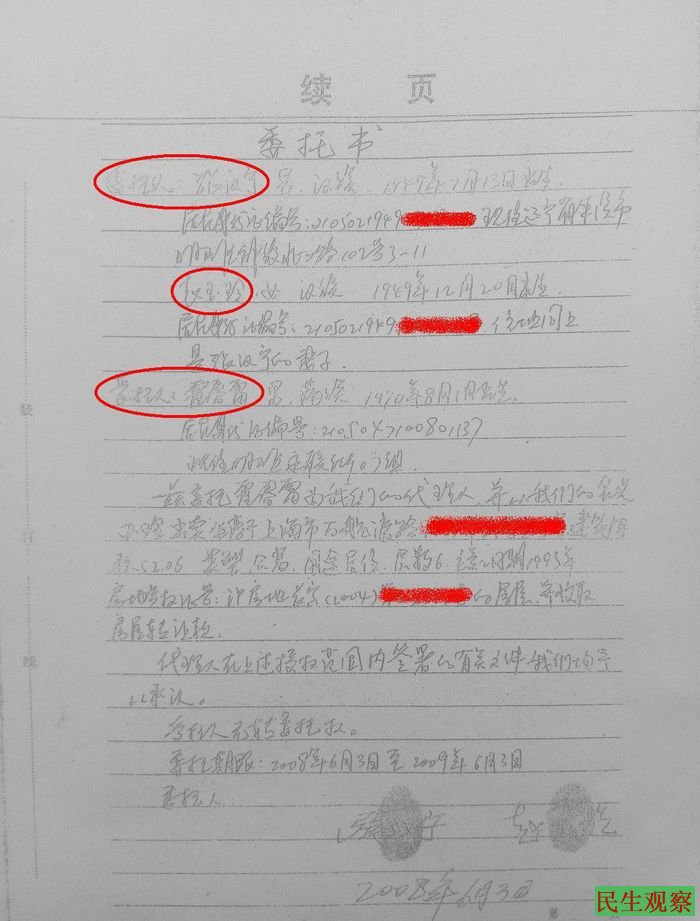 续 页
委托书
男、汉族、1949年7月13日出生.
居民身份证编号:2105021949 现住辽宁省本溪市
解放北路102号3-11
赵玉珍,女 汉族 1949年12月20日出生
居民身份证编号:2105021949 住址同上
是 汉宁的妻子
受托人: 雷 男、满族、1970年8月1日出生.
居民身份证编号:210504700801137
组
兹委托 雷为我们的代理人,并以我们的名义
办理出卖坐落于上海市万航渡路 建筑面
积52.06 类型 公寓、用途 居住、层数6、竣工日期1995年
房地产权证号:沪房地 (2004) 的房屋,并收取
房屋转让款.
代理人在上述授权范围内签署的有关文件,我们均予
以承认。
受托人无转委托权。
委托期限:2008年6月3日至2009年6月3日
委托人
2008年6月3日
装
订
线
第
民生观察